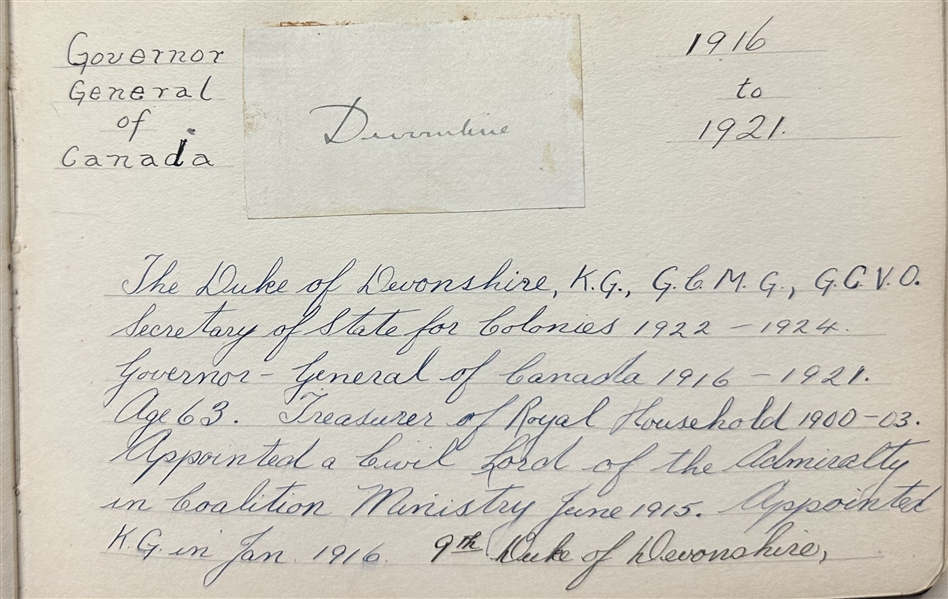 Governor
General
of
Canada
Devonshire
1916
to
1921.
The Duke of Devonshire, K.G., G.C.M.G., G.C.V.O.
Secretary of State for Colonies 1922 – 1924.
Governor – General of Canada 1916 – 1921.
Age 63. Treasurer of Royal Household 1900 – 03.
Appointed a Civil Lord of the Admiralty
in Coalition Ministry June 1915. Appointed
K.G. in Jan. 1916. 9th Duke of Devonshire,